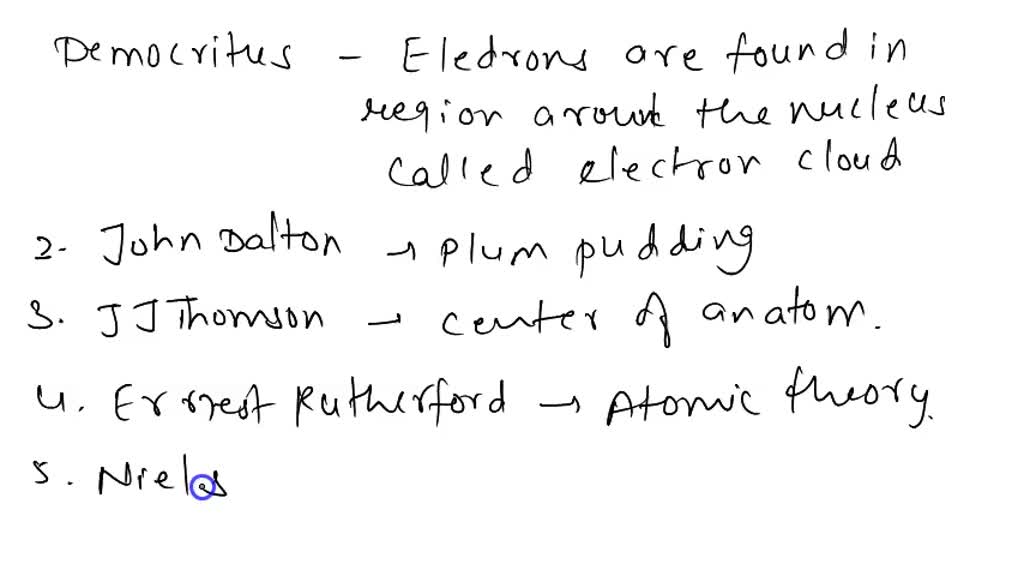 Democritus - Eledrons are found in
region arounk the nucleus
called electron cloud
2. John Dalton → plum pudding
3. J J Thomson → center of anatom.
4. Ernest Rutherford → Atomic theory.
5. Niels